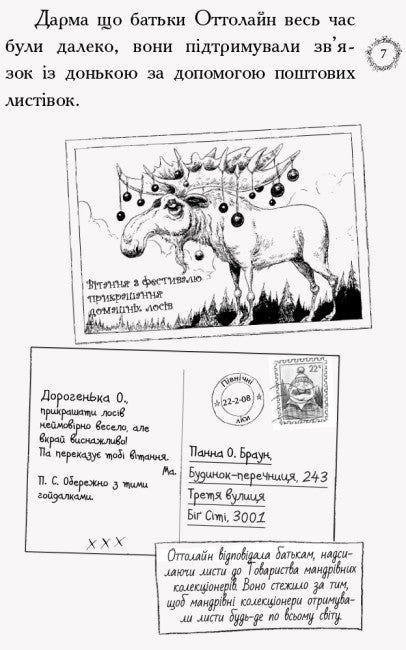 Дарма що батьки Оттолайн весь час
були далеко, вони підтримували зв’я-
зок із донькою за допомогою поштових
листівок.
7
Вітання з фестивалю
прикрашання
домашніх лосів
Дорогенька О.,
прикрашати лосів
неймовірно весело, але
вкрай виснажливо!
Па переказує тобі вітання.
Ма.
П. С. Обережно з тими
гойдалками.
X X X
Північні
22-2-08
ліси
22¢
Панна О. Браун,
Будинок-перечниця, 243
Третя вулиця
Біг Сіті, 3001
Оттолайн відповідала батькам, надси-
лаючи листи до Товариства мандрівних
колекціонерів. Воно стежило за тим,
щоб мандрівні колекціонери отримува-
ли листи будь-де по всьому світу.